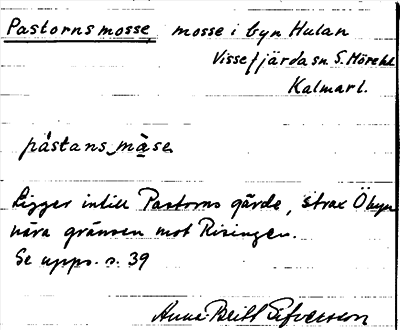 Pastorns mosse mosse i byn Hulan
Vissefjärda sn. S. Möre hd
Kalmar l.
påstans måse
Ligger intill Pastorns gärde, strax Ö byn
nära gränsen mot Risingen.
Se upps. s. 39
Anna-Britt Sifversson